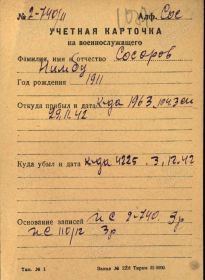 № 2-740/11 Алф. Сос
УЧЕТНАЯ КАРТОЧКА
на военнослужащего
Фамилия, имя и отчество Сосоров
Нимбу
Год рождения 1911
Откуда прибыл и дата к-да 1963, 104 Зсп
29.11.42
Куда убыл и дата к-да 4225. 3.12.42
Основание записей ис 2-740. Зр
ис 110/12 Зр
Тип. № 1 Заказ №